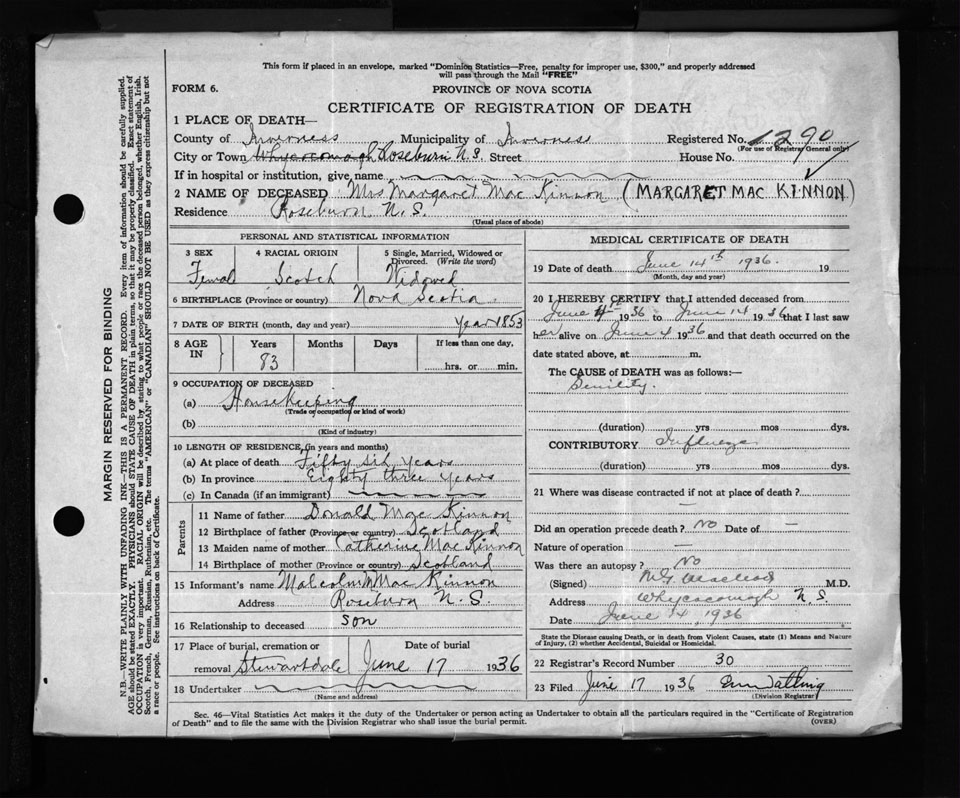 This form if placed in an envelope, marked "Dominion Statistics—Free, penalty for improper use, $300," and properly addressed
will pass through the Mail "FREE"
FORM 6.
PROVINCE OF NOVA SCOTIA
CERTIFICATE OF REGISTRATION OF DEATH
1 PLACE OF DEATH—
County of Inverness Municipality of Inverness Registered No. 1290
(For use of Registrar General only)
City or Town Whycocomagh Roseburn N.S. Street House No.
If in hospital or institution, give name
2 NAME OF DECEASED Mrs Margaret Mac Kinnon (MARGARET MAC KINNON)
Residence Roseburn N.S.
(Usual place of abode)
PERSONAL AND STATISTICAL INFORMATION
3 SEX 4 RACIAL ORIGIN 5 Single, Married, Widowed or
Divorced. (Write the word)
Femal Scotch Widowed
6 BIRTHPLACE (Province or country) Nova Scotia
7 DATE OF BIRTH (month, day and year) year 1853
8 AGE IN Years Months Days If less than one day,
83 hrs. or min.
9 OCCUPATION OF DECEASED
(a) Housekeeping
(Trade or occupation or kind of work)
(b)
(Kind of industry)
10 LENGTH OF RESIDENCE, (in years and months)
(a) At place of death Fifty six years
(b) In province Eighty three years
(c) In Canada (if an immigrant)
Parents
11 Name of father Donald Mac Kinnon
12 Birthplace of father (Province or country) Scotland
13 Maiden name of mother Catherine Mac Kinnon
14 Birthplace of mother (Province or country) Scotland
15 Informant's name Malcolm Mac Kinnon
Address Roseburn N.S.
16 Relationship to deceased son
17 Place of burial, cremation or Date of burial
removal Stewartdale June 17 1936
18 Undertaker
(Name and address)
MEDICAL CERTIFICATE OF DEATH
19 Date of death June 14th 1936. 19
(Month, day and year)
20 I HEREBY CERTIFY that I attended deceased from
June 4th 1936 to June 14 1936 that I last saw
her alive on June 4 1936 and that death occurred on the
date stated above, at m.
The CAUSE of DEATH was as follows:—
Senility.
(duration) yrs mos dys.
CONTRIBUTORY Influenza
(duration) yrs mos dys.
21 Where was disease contracted if not at place of death?
—
Did an operation precede death? No Date of —
Nature of operation —
Was there an autopsy? No
(Signed) MacLeod M.D.
Address Whycocomagh N.S.
Date June 14, 1936
State the Disease causing Death, or in death from Violent Causes, state (1) Means and Nature
of Injury, (2) whether Accidental, Suicidal or Homicidal.
22 Registrar's Record Number 30
23 Filed June 17 1936
(Division Registrar)
Sec. 46—Vital Statistics Act makes it the duty of the Undertaker or person acting as Undertaker to obtain all the particulars required in the "Certificate of Registration
of Death" and to file the same with the Division Registrar who shall issue the burial permit. (OVER)
MARGIN RESERVED FOR BINDING
N.B.—WRITE PLAINLY WITH UNFADING INK—THIS IS A PERMANENT RECORD. Every item of information should be carefully supplied.
AGE should be stated EXACTLY. PHYSICIANS should STATE CAUSE OF DEATH in plain terms, so that it may be properly classified. Exact statement of
OCCUPATION is very important. RACIAL ORIGIN will be described by stating to what people or race the deceased person belonged, whether English, Irish,
Scotch, French, German, Russian, Ruthenian, etc. The terms "AMERICAN" or "CANADIAN" SHOULD NOT BE USED as they express citizenship but not
a race or people. See instructions on back of Certificate.